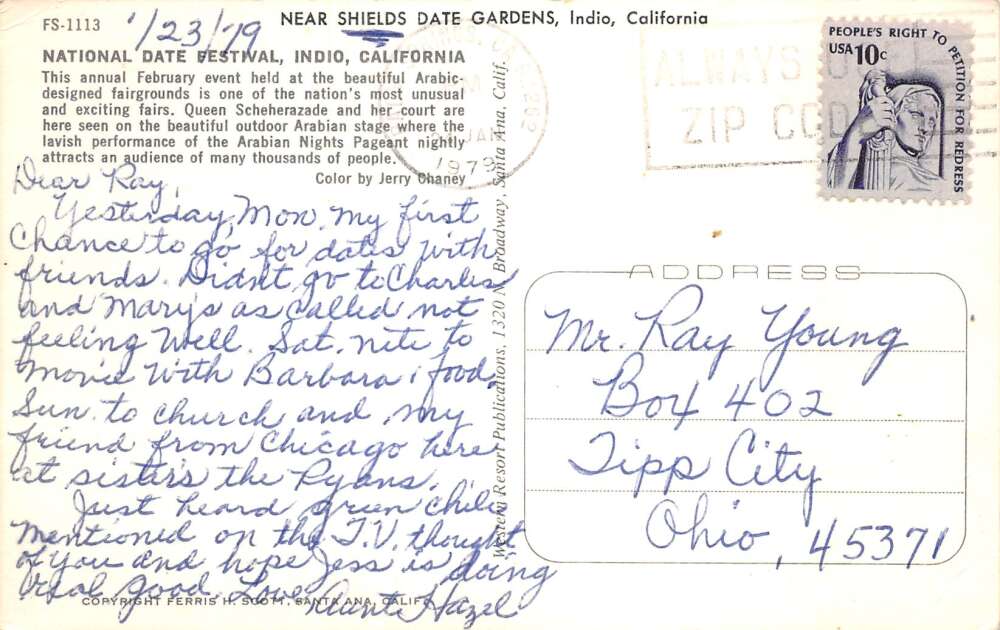 FS-1113
1/23/79
NEAR SHIELDS DATE GARDENS, Indio, California
NATIONAL DATE FESTIVAL, INDIO, CALIFORNIA
This annual February event held at the beautiful Arabic-
designed fairgrounds is one of the nation's most unusual
and exciting fairs. Queen Scheherazade and her court are
here seen on the beautiful outdoor Arabian stage where the
lavish performance of the Arabian Nights Pageant nightly
attracts an audience of many thousands of people.
Color by Jerry Chaney
Dear Ray,
Yesterday, Mon. my first
chance to go for dates with
friends. Didn't go to Charles
and Mary's as called not
feeling well. Sat. nite to
movie with Barbara & food,
Sun. to church and my
friend from Chicago here
at sisters the Ryans.
Just heard green chile
mentioned on the T.V. thought
of you and hope Jess is doing
real good. Love, Aunt Hazel
COPYRIGHT FERRIS H. SCOTT, SANTA ANA, CALIF.
Western Resort Publications, 1320 N. Broadway, Santa Ana, Calif.
JAN
1979
ALWAYS
ZIP CODE
PEOPLE'S RIGHT TO PETITION FOR REDRESS
USA 10c
ADDRESS
Mr. Ray Young
Box 402
Tipp City
Ohio, 45371